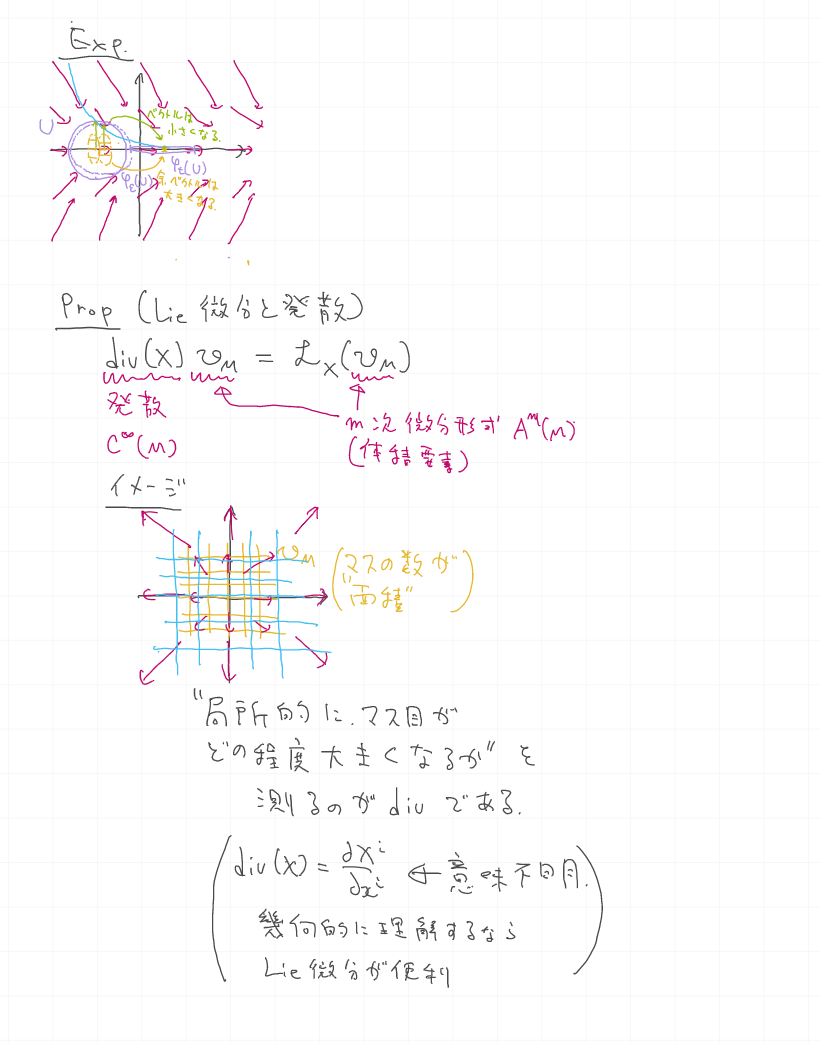 Exp.
ベクトルは
小さくなる.
U
φ_t(U)
φ_ε(U)
余ベクトルは
大きくなる.
Prop (Lie 微分と発散)
div(X) v_M = ℒ_X(v_M)
発散
m次微分形式 A^m(M)
C^∞(M)
(体積要素)
イメージ
v_M
(マスの数が
"面積")
"局所的に、マス目が
どの程度大きくなるか" を
測るのが div である.
(div(X) = ∂X^i/∂x^i ← 意味不明.
幾何的に理解するなら
Lie 微分が便利)